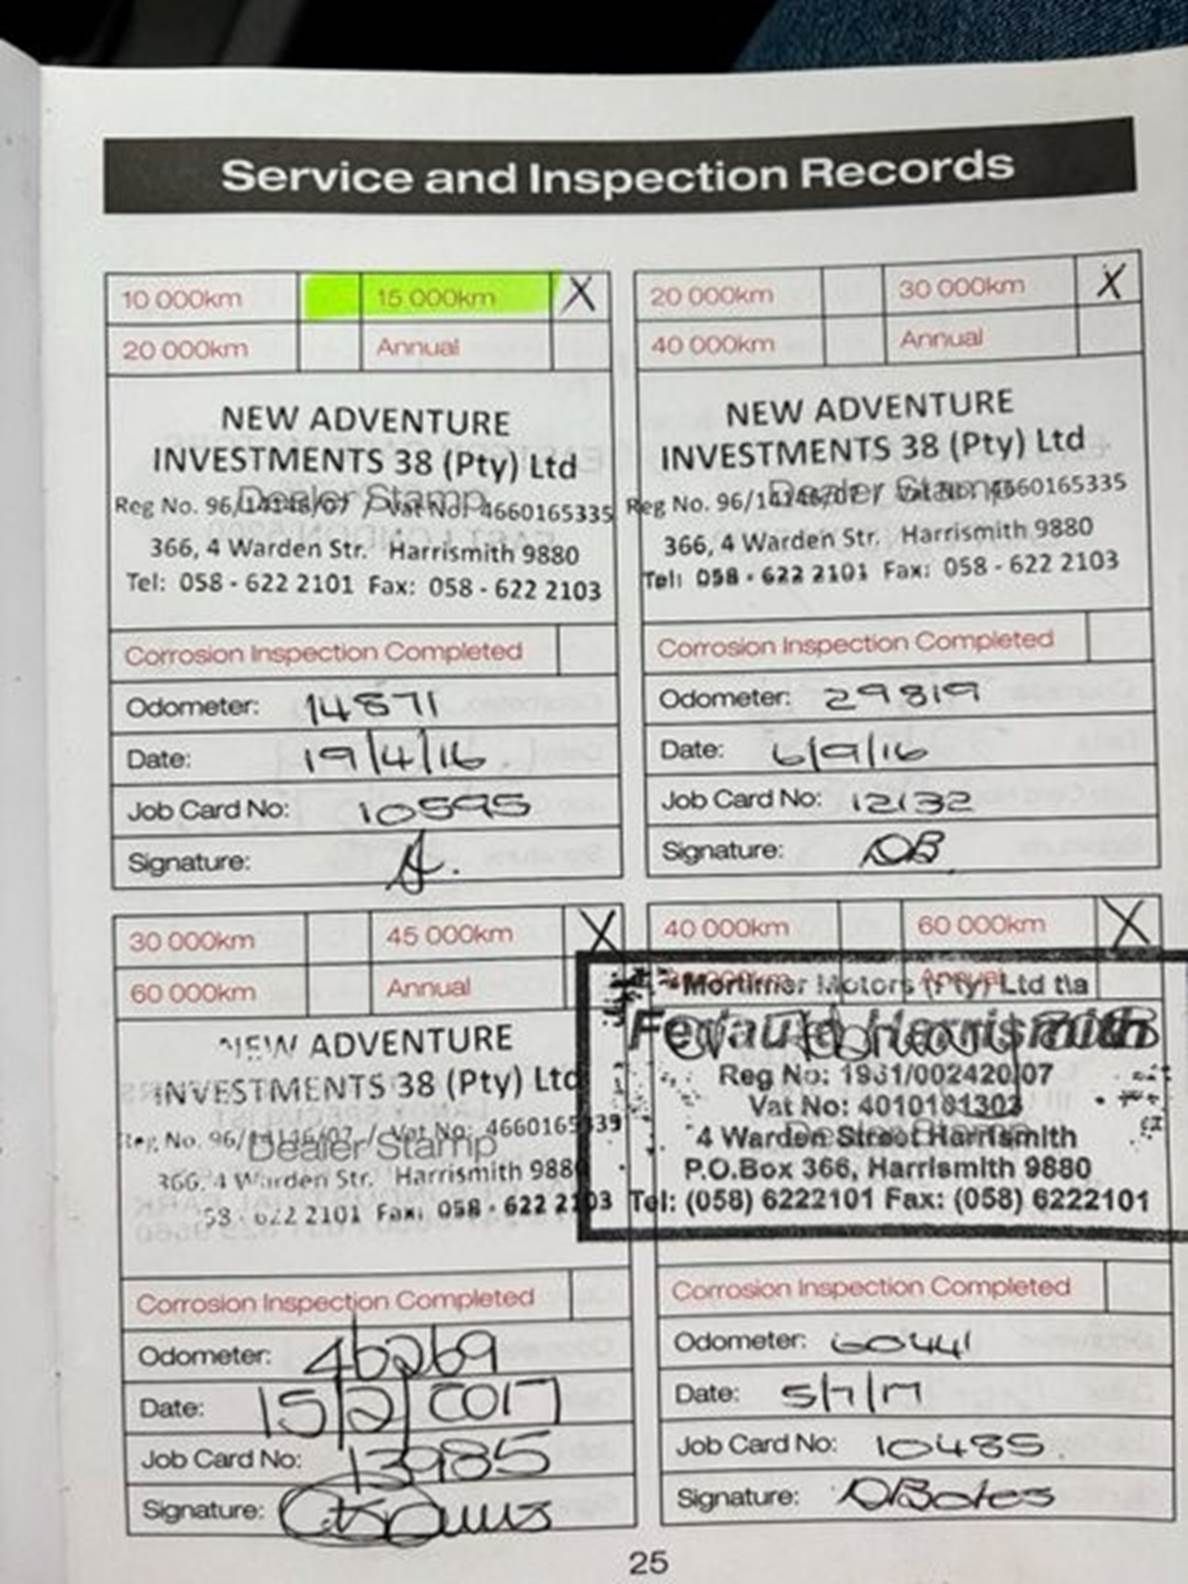 Service and Inspection Records
10 000km 15 000km X
20 000km Annual
NEW ADVENTURE
INVESTMENTS 38 (Pty) Ltd
Dealer Stamp
Reg No. 96/14146/07 / Vat No: 4660165335
366, 4 Warden Str. Harrismith 9880
Tel: 058 - 622 2101 Fax: 058 - 622 2103
Corrosion Inspection Completed
Odometer: 14871
Date: 19/4/16.
Job Card No: 10595
Signature:
20 000km 30 000km X
40 000km Annual
NEW ADVENTURE
INVESTMENTS 38 (Pty) Ltd
Dealer Stamp
Reg No. 96/14146/07 / Vat No: 4660165335
366, 4 Warden Str. Harrismith 9880
Tel: 058 - 622 2101 Fax: 058 - 622 2103
Corrosion Inspection Completed
Odometer: 29819
Date: 6/9/16
Job Card No: 12132
Signature: DB
30 000km 45 000km X
60 000km Annual
NEW ADVENTURE
INVESTMENTS 38 (Pty) Ltd
Dealer Stamp
Reg. No. 96/14146/07 / Vat No: 4660165339
366, 4 Warden Str. Harrismith 9880
58 - 622 2101 Fax: 058 - 622 2103
Corrosion Inspection Completed
Odometer: 46269
Date: 15/2/2017
Job Card No: 13985
Signature:
40 000km 60 000km X
Annual
Mortimer Motors (Pty) Ltd t\a
Harrismith
Reg No: 1961/002420/07
Vat No: 4010101303
Dealer Stamp
4 Warden Street Harrismith
P.O.Box 366, Harrismith 9880
Tel: (058) 6222101 Fax: (058) 6222101
Corrosion Inspection Completed
Odometer: 60441
Date: 5/7/17
Job Card No: 10485
Signature: DBotes
25